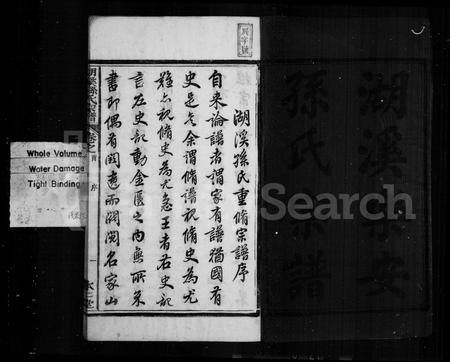 湖溪孫氏宗譜
湖溪孫氏重脩宗譜序
自来論譜者謂家有譜猶國有
史是矣余謂脩譜視脩史為尤
難亦視脩史為尤急王者右史記
言左史記動金匱之内無所不
書即偶有闕遺而闕閱名家山
湖溪孫氏宗譜 卷之首 序
Whole Volume
Water Damage
Tight Binding
Search